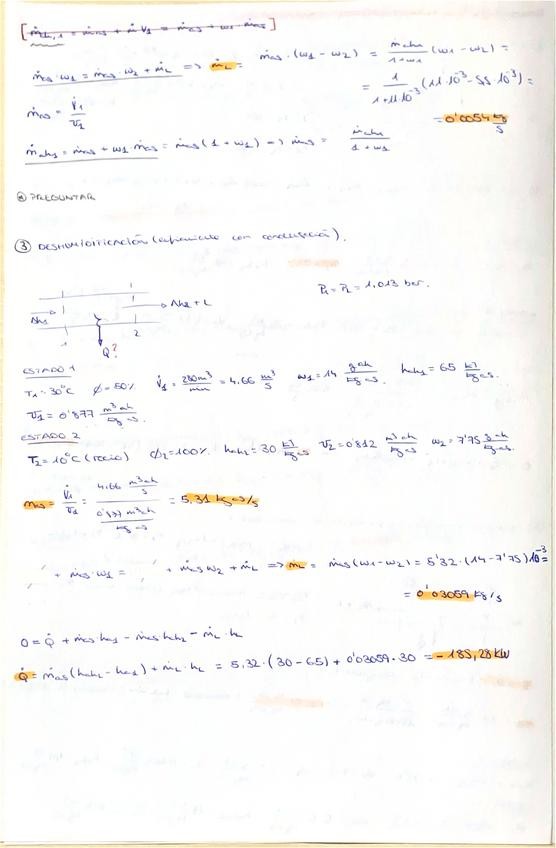 ṁah,1 = ṁas + ṁV1 = ṁas + ω1 · ṁas
ṁas · ω1 = ṁas · ω2 + ṁL => ṁL = ṁas · (ω1 - ω2) = ṁah1/(1+ω1) (ω1 - ω2) =
= 1/(1+11·10⁻³) (11·10⁻³ - 5,5·10⁻³) =
= 0'0054 kg/s
ṁas = V̇1/v1
ṁah1 = ṁas + ω1 ṁas = ṁas (1 + ω1) => ṁas = ṁah1/(1+ω1)
PREGUNTAR
③ DESHUMIDIFICACIÓN (enfriamiento con condensación).
P1 = P2 = 1,013 bar.
ṁh1
ṁh2 + L
1
2
Q?
ESTADO 1
T1 = 30°C φ = 50% V̇1 = 280 m³/min = 4,66 m³/s ω1 = 14 gah/kg as hah1 = 65 kJ/kg as.
v1 = 0'877 m³ah/kg as.
ESTADO 2
T2 = 10°C (rocío) φ2 = 100% hah2 = 30 kJ/kg as v2 = 0'812 m³ah/kg as ω2 = 7'75 gah/kg as.
ṁas = V̇1/v1 = (4,66 m³ah/s)/(0'877 m³ah/kg as) = 5,31 kg as/s
+ ṁas · ω1 = + ṁas ω2 + ṁL => ṁL = ṁas (ω1 - ω2) = 5'32 · (14 - 7'75) 10⁻³ =
= 0'03059 kg/s
0 = Q̇ + ṁas hah1 - ṁas hah2 - ṁL · hL
Q̇ = ṁas (hah2 - hah1) + ṁL · hL = 5,32 · (30 - 65) + 0'03059 · 30 = -185,28 kW